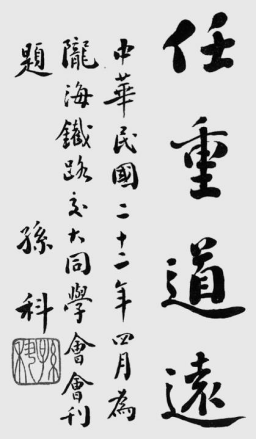 任重道遠
中華民國二十二年四月為
隴海鐵路交大同學會會刊
題
孫科